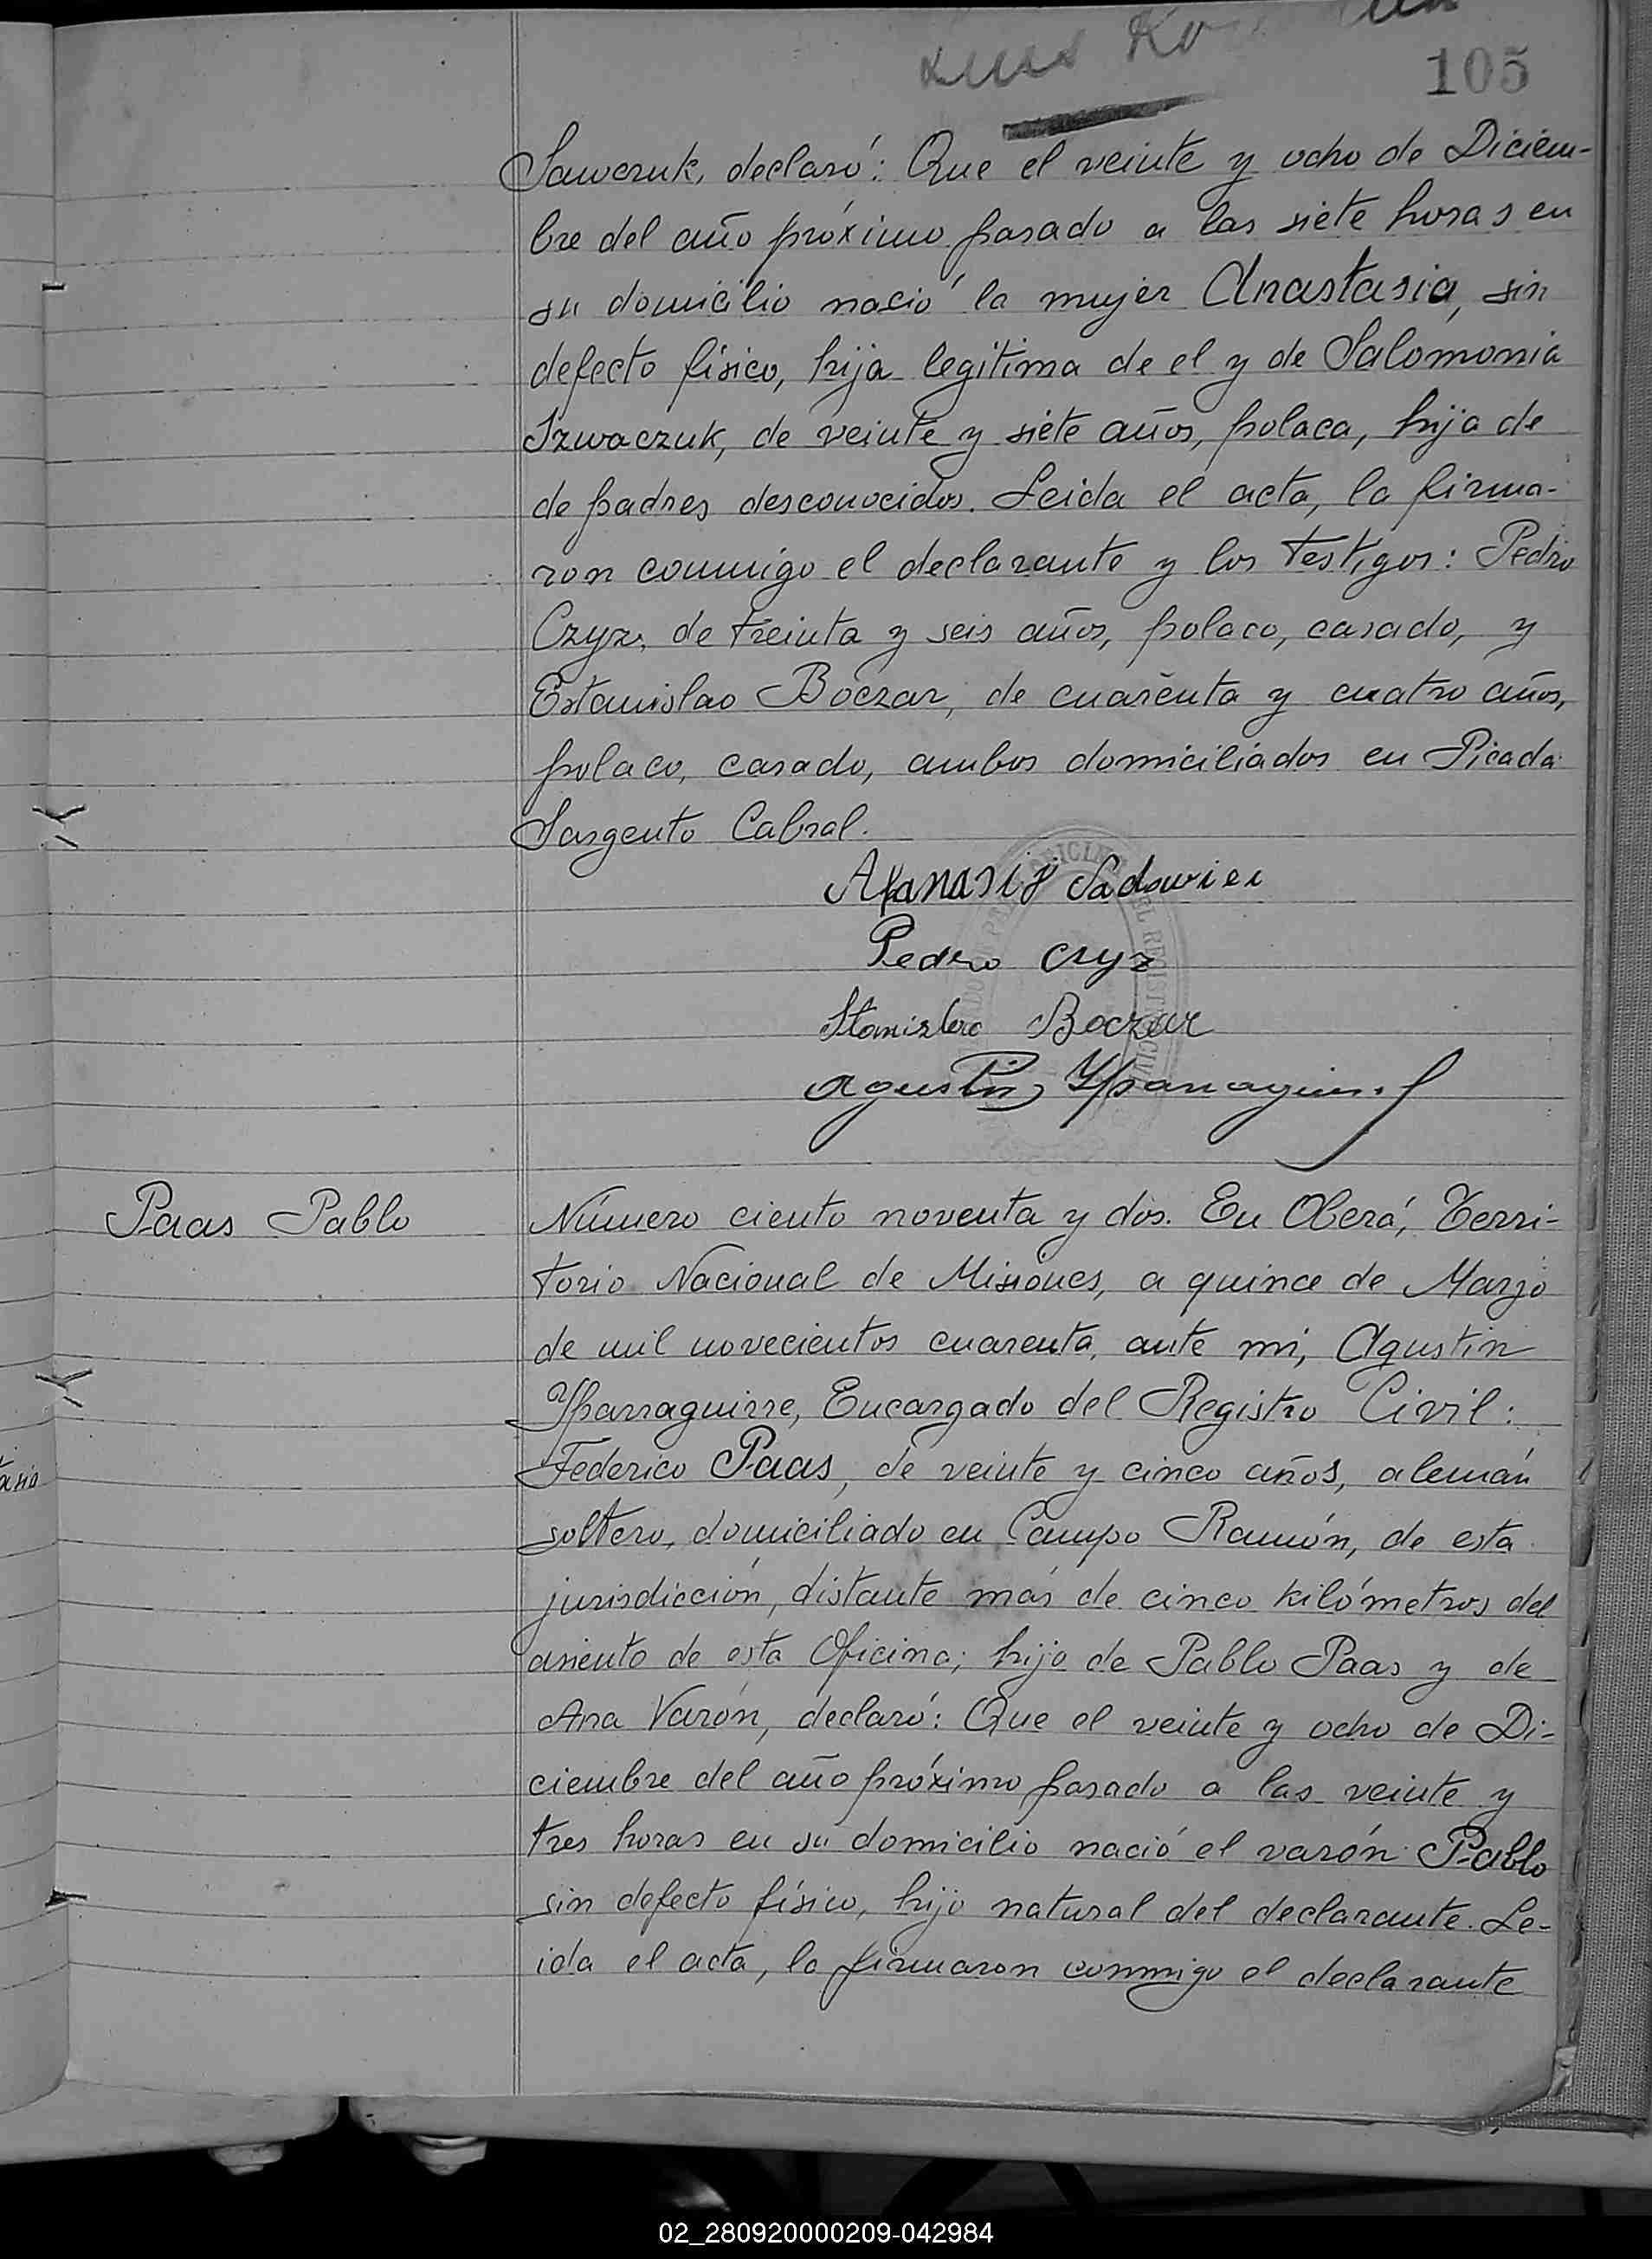 105
Sawczuk, declaró: Que el veinte y ocho de Diciem-
bre del año próximo pasado a las siete horas en
su domicilio nació la mujer Anastasia, sin
defecto físico, hija legitima de el y de Salomonia
Szwaczuk, de veinte y siete años, polaca, hija de
de padres desconocidos. Leida el acta, la firma-
ron conmigo el declarante y los testigos: Pedro
Czyz, de treinta y seis años, polaco, casado, y
Estanislao Boczar, de cuarenta y cuatro años,
polaco, casado, ambos domiciliados en Picada
Sargento Cabral.
Afanasij
Pedro Czyz
Boczar
Agustin
Paas Pablo
Número ciento noventa y dos. En Oberá, Terri-
torio Nacional de Misiones, a quince de Marzo
de mil novecientos cuarenta, ante mi, Agustin
Yparraguirre, Encargado del Registro Civil:
Federico Paas, de veinte y cinco años, alemán
soltero, domiciliado en Campo Ramón, de esta
jurisdicción, distante más de cinco kilómetros del
asiento de esta Oficina; hijo de Pablo Paas y de
Ana Varón, declaró: Que el veinte y ocho de Di-
ciembre del año próximo pasado a las veinte y
tres horas en su domicilio nació el varón Pablo
sin defecto físico, hijo natural del declarante. Le-
ida el acta, la firmaron conmigo el declarante
02_280920000209-042984